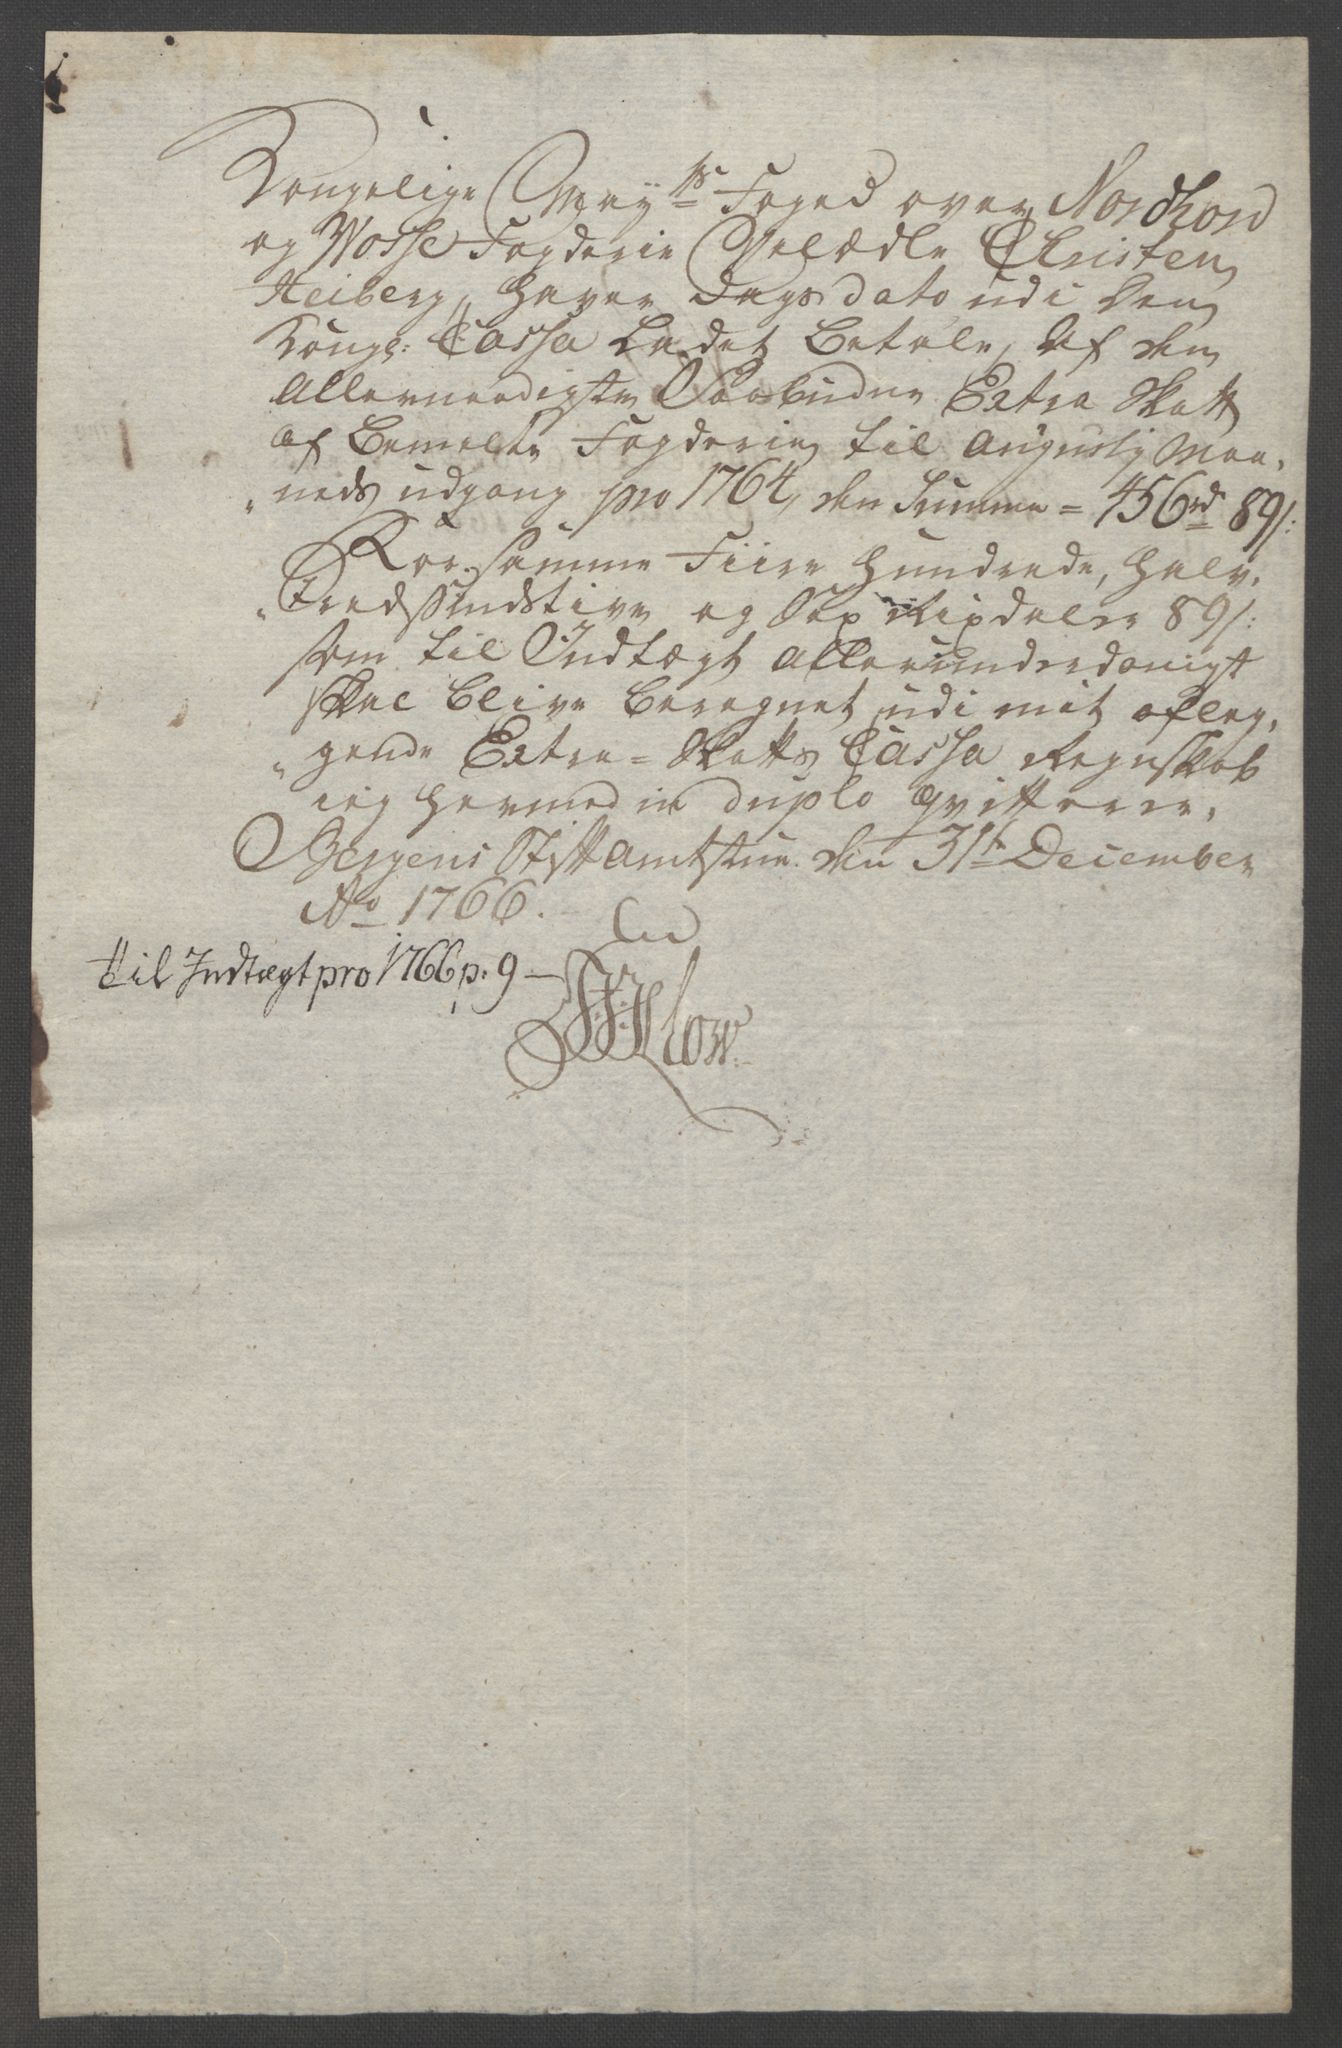 Kongelige May:ts Foged over Nordhord
og Vosse Fogderie Velædle Christen
Heiberg, haver Dags dato udi den
Kongl: Cassa Ladet Betale, Af den
Allernaadigste Paabudne Extra Skatt
af bemelte Fogderie, til Augusty Maa,
„neds udgang pro 1764, den Summa = 456rd 89s:
For samme Fiire hundrede, halv,
„Tredssindstive og Sex Rixdaler 89s:
som til Indtægt allerunderdanigst
skal blive beregnet udi mit aflæg,
„gende Extra=Skatts Cassa Regnskab
ieg hermed in duplo qvitterer,
Bergens Stiftamtstue den 31te December
Ao 1766.
til Indtægt pro 1766 p. 9 —